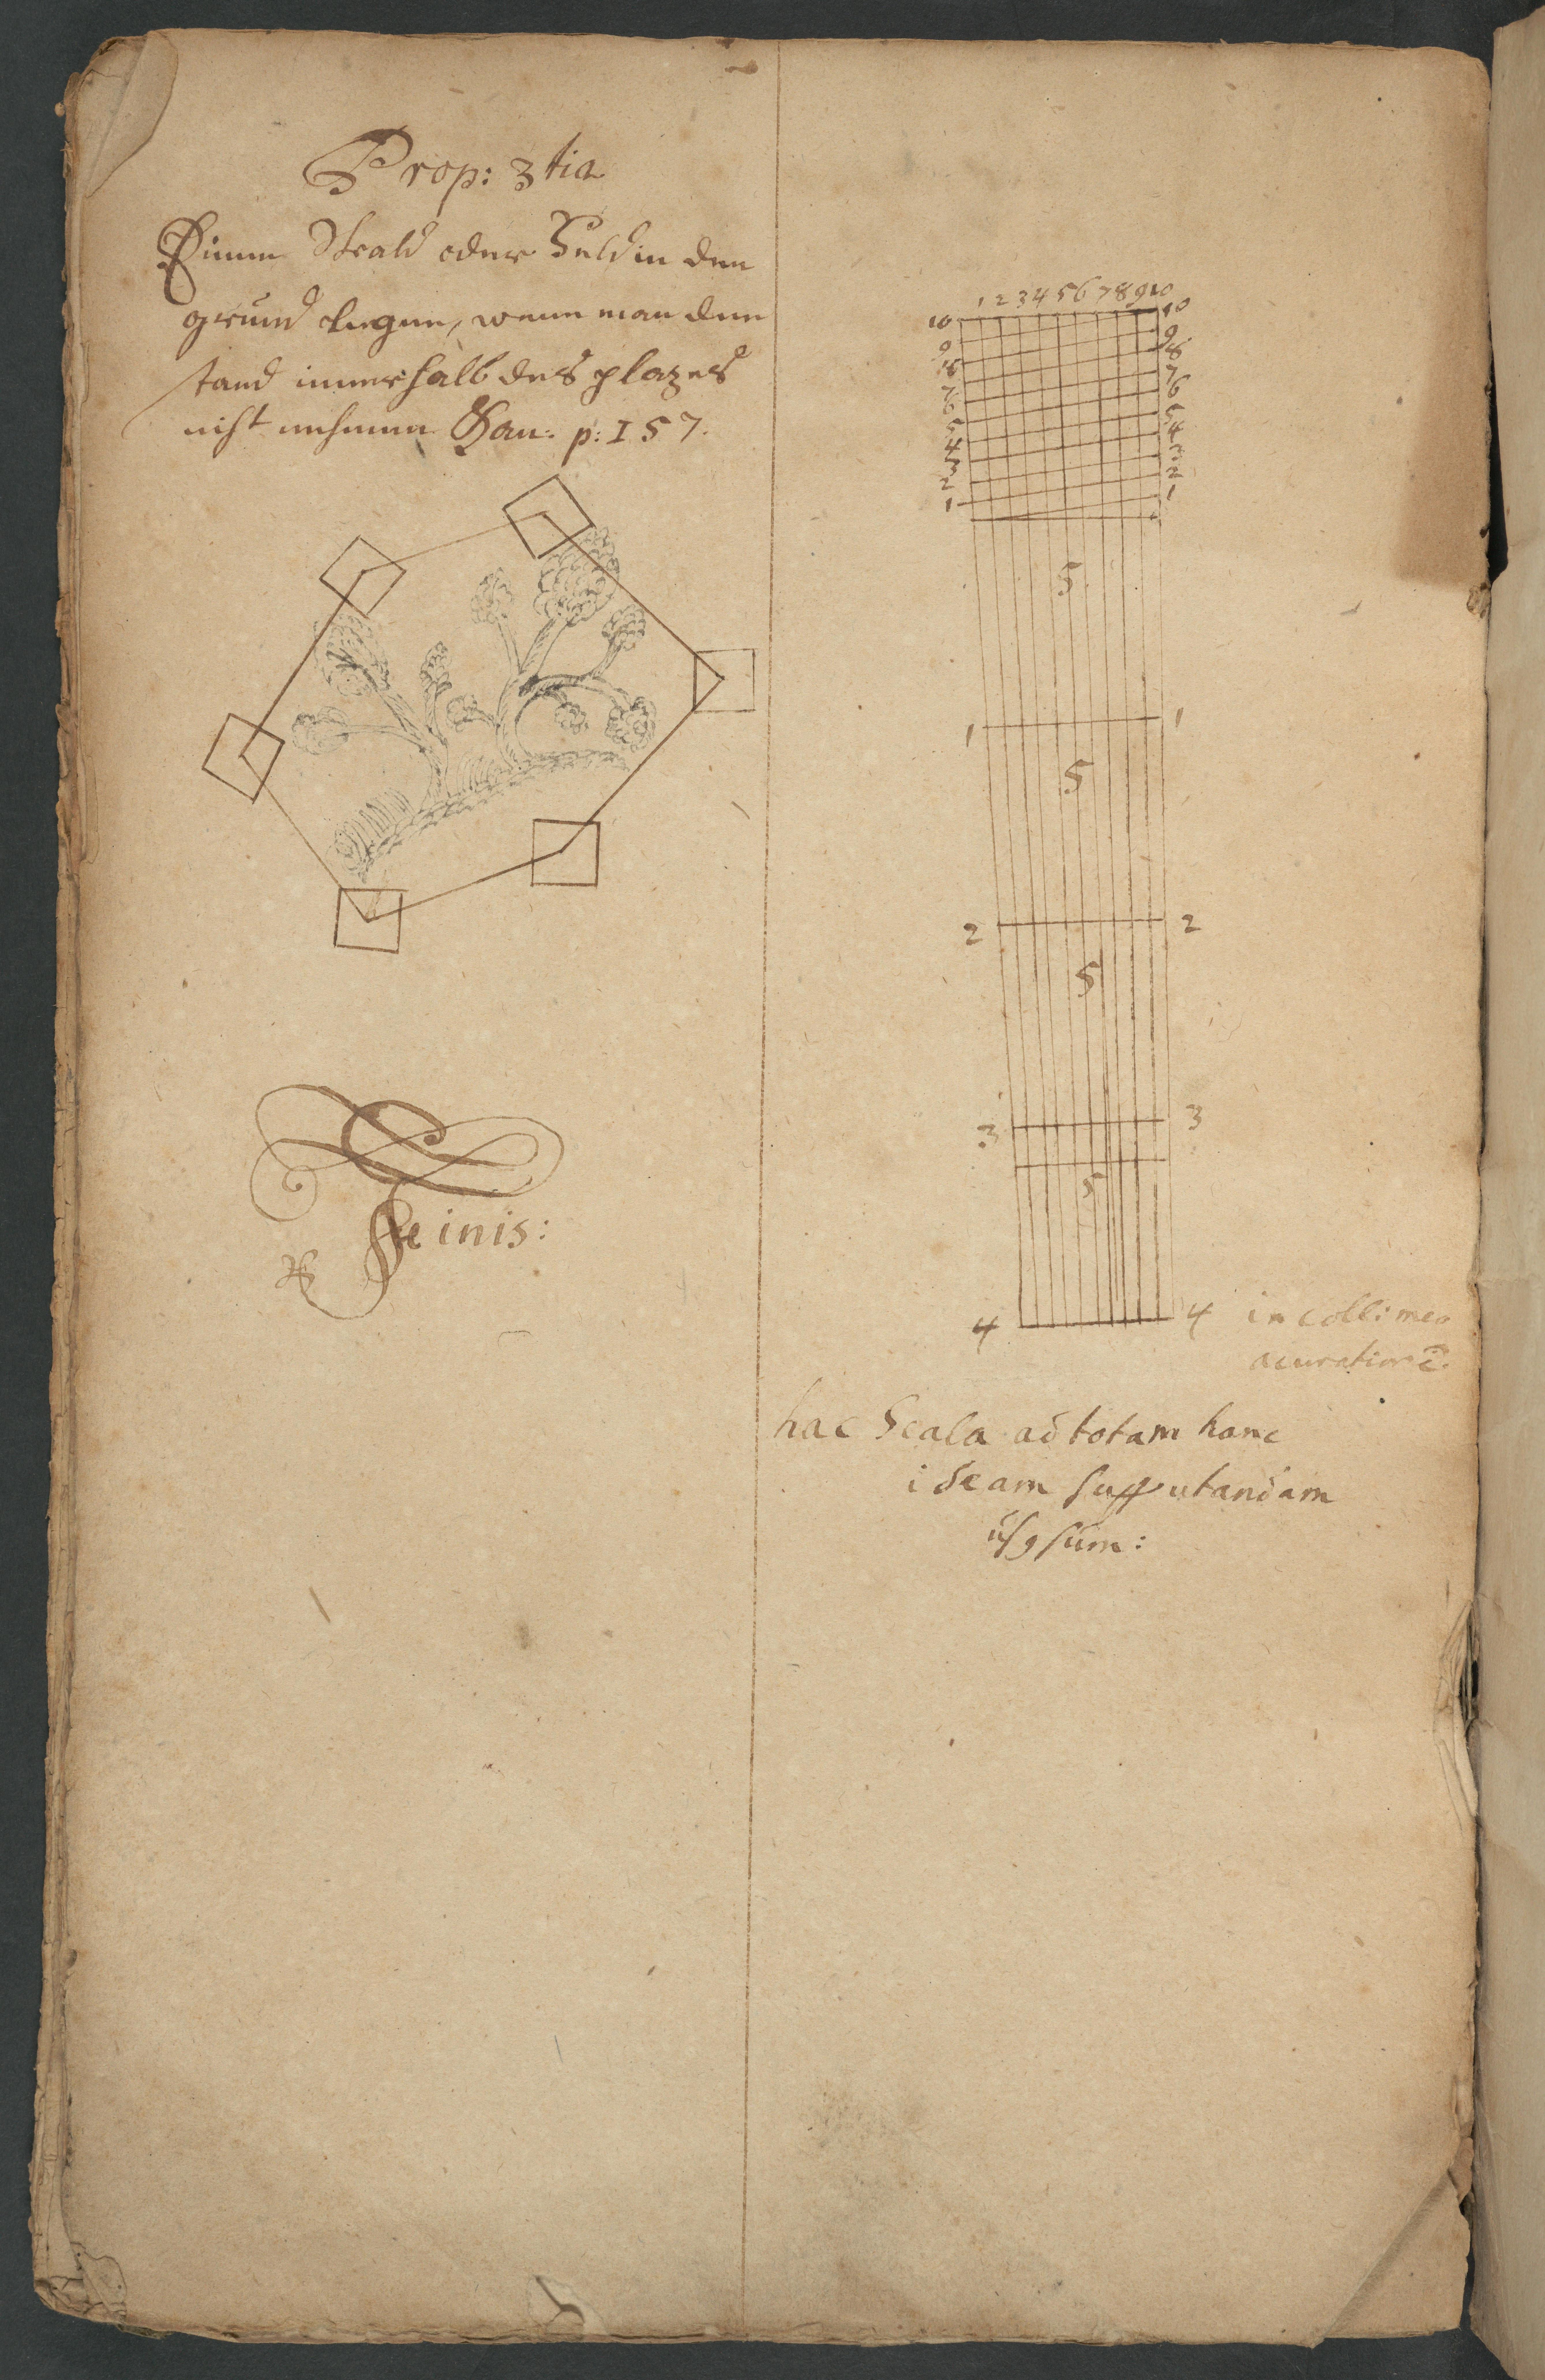 Prop: 3tia
Einen Wald oder Feld in den
grund legen, wenn man den
stand innerhalb des plazes
nicht nehmen kan: p: 157.
Finis:
1 2 3 4 5 6 7 8 9 10
10 10
9 9
8 8
7 7
6 6
5 5
4 4
3 3
2 2
1 1
5
1 1
5
2 2
5
3 3
5
4 4 in coll: meo
acuratior ē.
hac Scala ad totam hanc
ideam supputandam
usq sum: